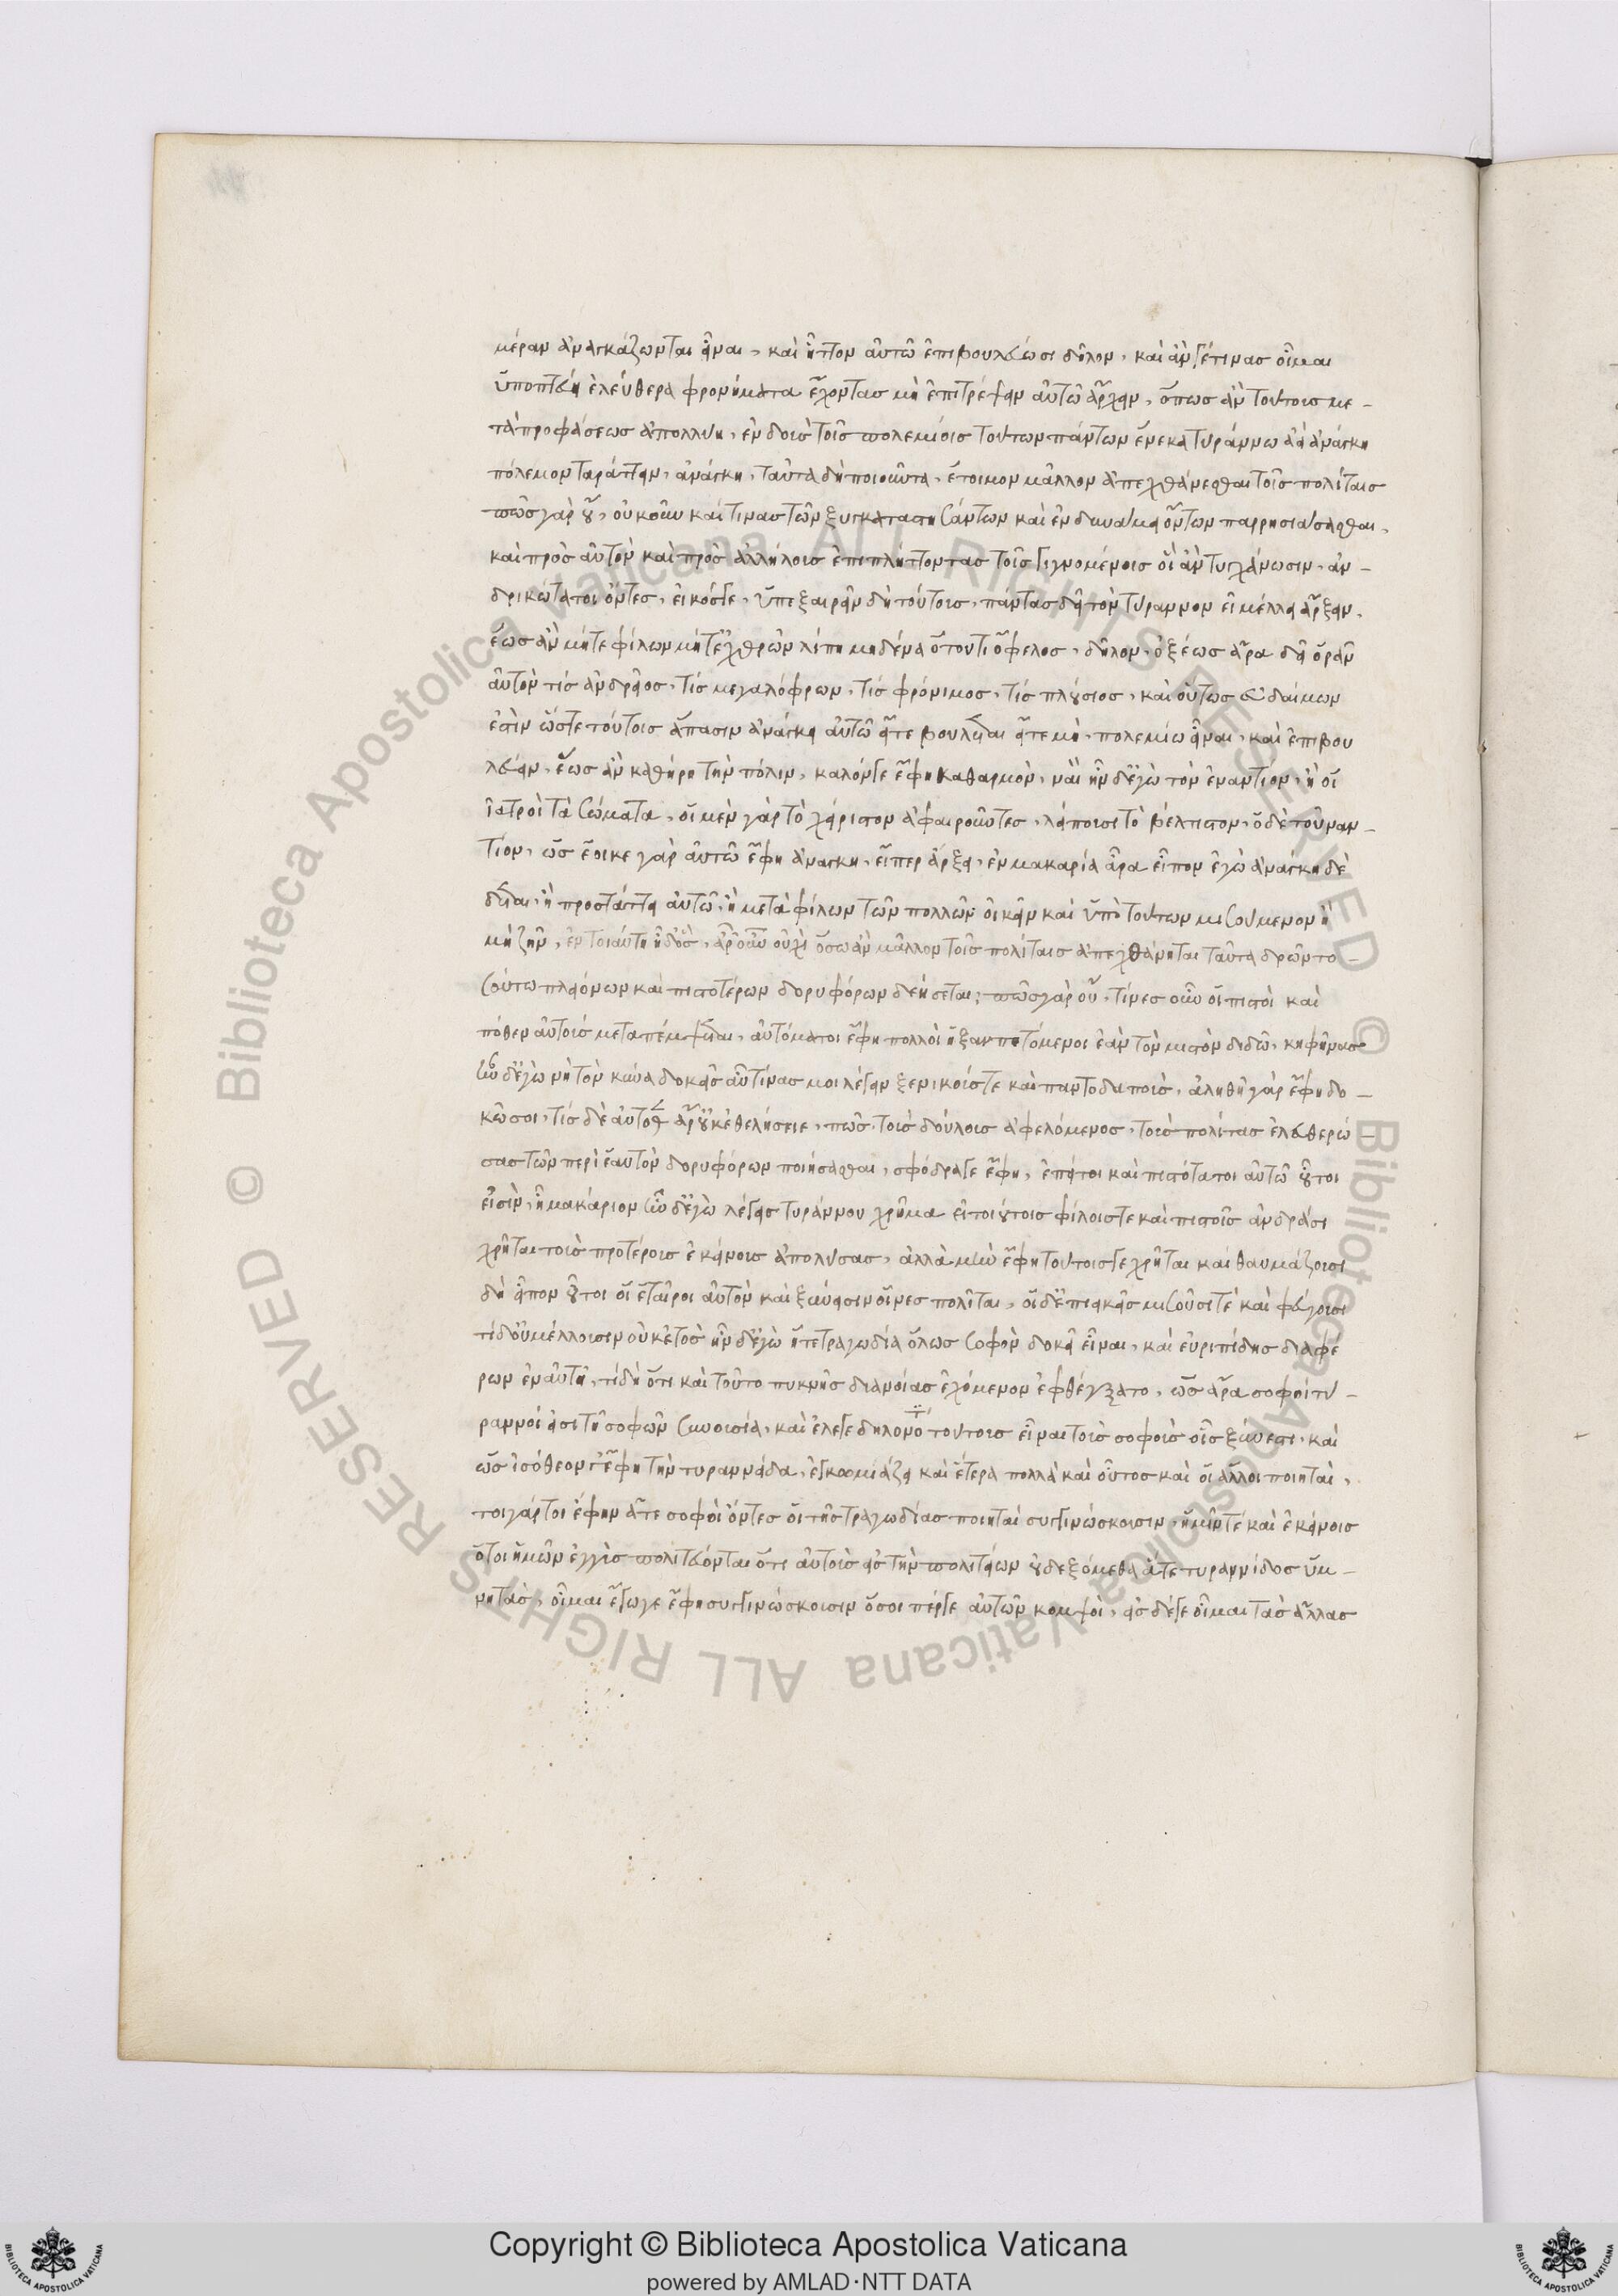 μέραν ἀναγκάζωνται εἶναι, καὶ ἧττον αὐτῶ ἐπιβουλεύωσι δῆλον, καὶ ἄν γέ τινασ οἶμαι
ὑποπτεύη ἐλεύθερα φρονήματα ἔχοντασ μὴ ἐπιτρέψειν αὐτῶ ἄρχειν, ὅπωσ ἂν τούτουσ με-
τὰ προφάσεωσ ἀπολλύη, ἐνδοὺσ τοῖσ πολεμίοισ τούτων πάντων ἕνεκα τυράννω ἀεὶ ἀνάγκη
πόλεμον ταράττειν, ἀνάγκη, ταῦτα δὴ ποιοῦντα, ἕτοιμον μᾶλλον ἀπεχθάνεσθαι τοῖσ πολίταισ
πῶσ γὰρ οὔ, οὐκοῦν καί τινασ τῶν ξυγκαταστησάντων καὶ ἐν δυνάμει ὄντων παρρησιάζεσθαι,
καὶ πρὸσ αὐτὸν καὶ πρὸσ ἀλλήλουσ ἐπιπλήττοντασ τοῖσ γιγνομένοισ οἳ ἂν τυγχάνωσιν, ἀν-
δρικώτατοι ὄντεσ, εἰκόσγε, ὑπεξαιρεῖν δὴ τούτουσ, πάντασ δεῖ τὸν τύραννον εἰ μέλλει ἄρξειν,
ἕωσ ἂν μήτε φίλων μήτ' ἐχθρῶν λίπη μηδένα ὅτου τι ὄφελοσ, δῆλον, ὀξέωσ ἄρα δεῖ ὁρᾶν
αὐτὸν τίσ ἀνδρεῖοσ, τίσ μεγαλόφρων, τίσ φρόνιμοσ, τίσ πλούσιοσ, καὶ οὕτωσ εὐδαίμων
ἐστὶν ὥστε τούτοισ ἅπασιν ἀνάγκη αὐτῶ εἴτε βούλεται εἴτε μὴ, πολεμίω εἶναι, καὶ ἐπιβου
λεύειν, ἕωσ ἂν καθήρη τὴν πόλιν, καλόνγε ἔφη καθαρμὸν, ναὶ ἦν δ' ἐγὼ τὸν ἐναντίον, ἢ οἱ
ἰατροὶ τὰ σώματα, οἱ μὲν γὰρ τὸ χείριστον ἀφαιροῦντεσ, λείπουσι τὸ βέλτιστον, ὁ δὲ τοὐναν-
τίον, ὡσ ἔοικε γὰρ αὐτῶ ἔφη ἀνάγκη, εἴπερ ἄρξει, ἐν μακαρία ἄρα εἶπον ἐγὼ ἀνάγκη δὲ
δεται, ἣ προστάττει αὐτῶ, ἢ μετὰ φίλων τῶν πολλῶν οἰκεῖν καὶ ὑπὸ τούτων μισούμενον ἢ
μὴ ζῆν, ἐν τοιαύτη ἦ δ' ὅσ, ἆρ' οὖν οὐχὶ ὅσω ἂν μᾶλλον τοῖσ πολίταισ ἀπεχθάνηται ταῦτα δρῶν το-
σούτω πλειόνων καὶ πιστοτέρων δορυφόρων δεήσεται; πῶσ γὰρ οὔ, τίνεσ οὖν οἱ πιστοὶ καὶ
πόθεν αὐτοὺσ μεταπέμψεται, αὐτόματοι ἔφη πολλοὶ ἥξουσι πετόμενοι ἐὰν τὸν μισθὸν διδῶ, κηφῆνασ
ἦν δ' ἐγὼ νὴ τὸν κύνα δοκεῖσ αὖ τινασ μοι λέγειν ξενικούστε καὶ παντοδαποὺσ, ἀληθῆ γὰρ ἔφη δο-
κῶ σοι, τίσ δὲ αὐτόθεν ἆρ' οὐκ ἐθελήσειε, πῶσ, τοὺσ δούλουσ ἀφελόμενοσ, τοὺσ πολίτασ ἐλευθερώ-
σασ τῶν περὶ ἑαυτὸν δορυφόρων ποιήσασθαι, σφόδραγε ἔφη, ἐπεί τοι καὶ πιστότατοι αὐτῶ οὗτοι
εἰσὶν, ἦ μακάριον ἦν δ' ἐγὼ λέγεισ τυράννου χρῆμα εἰ τοιούτοισ φίλοιστε καὶ πιστοῖσ ἀνδράσι
χρῆται τοὺσ προτέρουσ ἐκείνουσ ἀπολύσασ, ἀλλὰ μὴν ἔφη τούτοισγε χρῆται καὶ θαυμάζουσι
δὴ εἶπον οὗτοι οἱ ἑταῖροι αὐτὸν καὶ ξύνεισιν οἱ νέοι πολῖται, οἱ δ' ἐπιεικεῖσ μισοῦσί τε καὶ φεύγουσι
τί δ' οὐ μέλλουσιν οὐκ ἐτὸσ ἦν δ' ἐγὼ ἥτε τραγωδία ὅλωσ σοφὸν δοκεῖ εἶναι, καὶ εὐριπίδησ διαφέ
ρων ἐν αὐτῆ, τί δὴ ὅτι καὶ τοῦτο πυκνῆσ διανοίασ ἐχόμενον ἐφθέγξατο, ὡσ ἄρα σοφοὶ τύ-
ραννοί εἰσι τῆ σοφῶν συνουσία, καὶ ἔλεγε δηλονό τούτουσ εἶναι τοὺσ σοφοὺσ οἷσ ξύνεστι, καὶ
ὡσ ἰσόθεον γ' ἔφη τὴν τυραννίδα, ἐγκωμιάζει καὶ ἕτερα πολλὰ καὶ οὗτοσ καὶ οἱ ἄλλοι ποιηταὶ,
τοιγάρτοι ἔφην ἅτε σοφοὶ ὄντεσ οἱ τῆσ τραγωδίασ ποιηταὶ συγγινώσκουσιν, ἡμῖν τέ καὶ ἐκείνοισ
ὅσοι ἡμῶν ἐγγὺσ πολιτεύονται ὅτι αὐτοὺσ εἰσ τὴν πολιτείαν οὐ δεξόμεθα ἅτε τυραννίδοσ ὑμ-
νητὰσ, οἶμαι ἔγωγε ἔφη συγγινώσκουσιν ὅσοι πέργε αὐτῶν κομψοὶ, εἰσ δέγε οἶμαι τὰσ ἄλλασ
© Biblioteca Apostolica Vaticana ALL RIGHTS RESERVED © Biblioteca Apostolica Vaticana ALL RIGHTS RESERVED
Copyright © Biblioteca Apostolica Vaticana
powered by AMLAD·NTT DATA
BIBLIOTECA APOSTOLICA VATICANA
BIBLIOTECA APOSTOLICA VATICANA